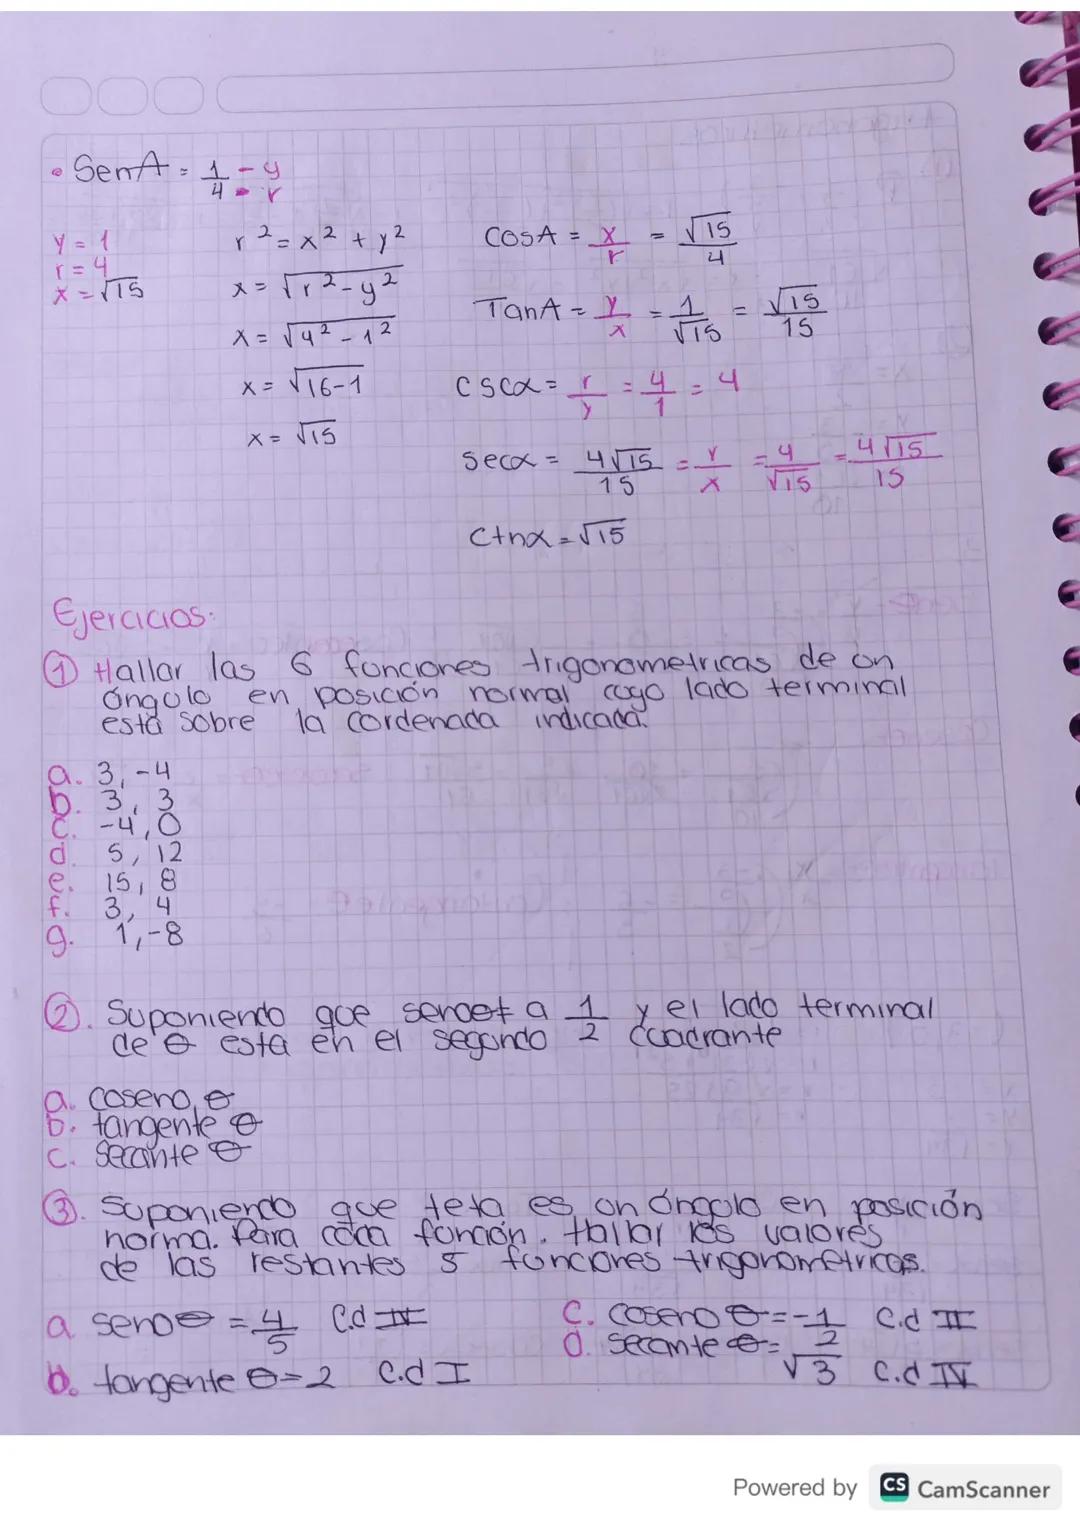 • SenA = 1/4 - y - r
y = 1
r = 4
x = √15
r² = x² + y²
x = √r² - y²
x = √4² - 1²
x = √16-1
x = √15
COSA = x/r = √15/4
TanA = y/x = 1/√15 = √15/15
CSCα = r/y = 4/1 = 4
Secα = 4√15/15 = r/x = 4/√15 = 4√15/15
Ctnα = √15
Ejercicios:
① Hallar las 6 funciones trigonometricas de un
ángulo en posición normal cuyo lado terminal
está sobre la cordenada indicada.
a. 3, -4
b. 3, 3
c. -4, 0
d. 5, 12
e. 15, 8
f. 3, 4
g. 1, -8
②. Suponiendo que a 1/2 y el lado terminal
de θ esta en el segundo cuadrante
a. coseno θ
b. tangente θ
c. secante θ
③. Suponiendo que teta es un ángulo en posición
norma. Para cada función. Hallar los valores
de las restantes 5 funciones trigonométricas.
a seno θ = 4/5 C.d
b. tangente θ = 2 C.d I
C. coseno θ = -1/2 C.d II
d. secante θ = √3 C.d IV
Powered by CS CamScanner